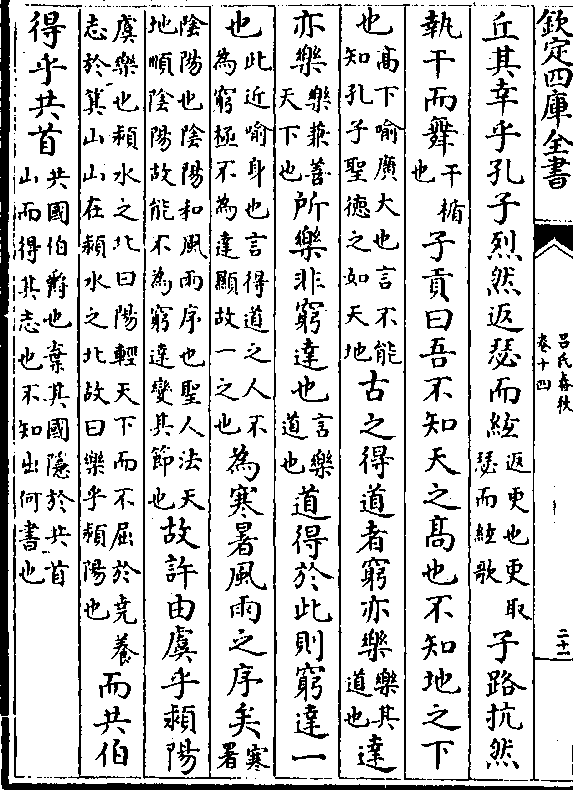 欽定四庫全書
呂氏春秋
卷十四
二十一
丘其幸乎孔子烈然返瑟而絃返更也更取瑟而絃歌子路抗然
執干而舞干楯也子貢曰吾不知天之髙也不知地之下
也髙下喻廣大也言不能知孔子聖德之如天地古之得道者窮亦樂樂其道也達
亦樂樂兼善天下也所樂非窮達也言樂道也道得於此則窮達一
也此近喻身也言得道之人不為窮極不為達顯故一之也為寒暑風雨之序矣寒暑
陰陽也陰陽和風雨序也聖人法天地順陰陽故能不為窮達變其節也故許由虞乎潁陽
虞樂也潁水之北曰陽輕天下而不屈於堯養志於箕山山在潁水之北故曰樂乎潁陽也而共伯
得乎共首共國伯爵也棄其國隱於共首山而得其志也不知出何書也